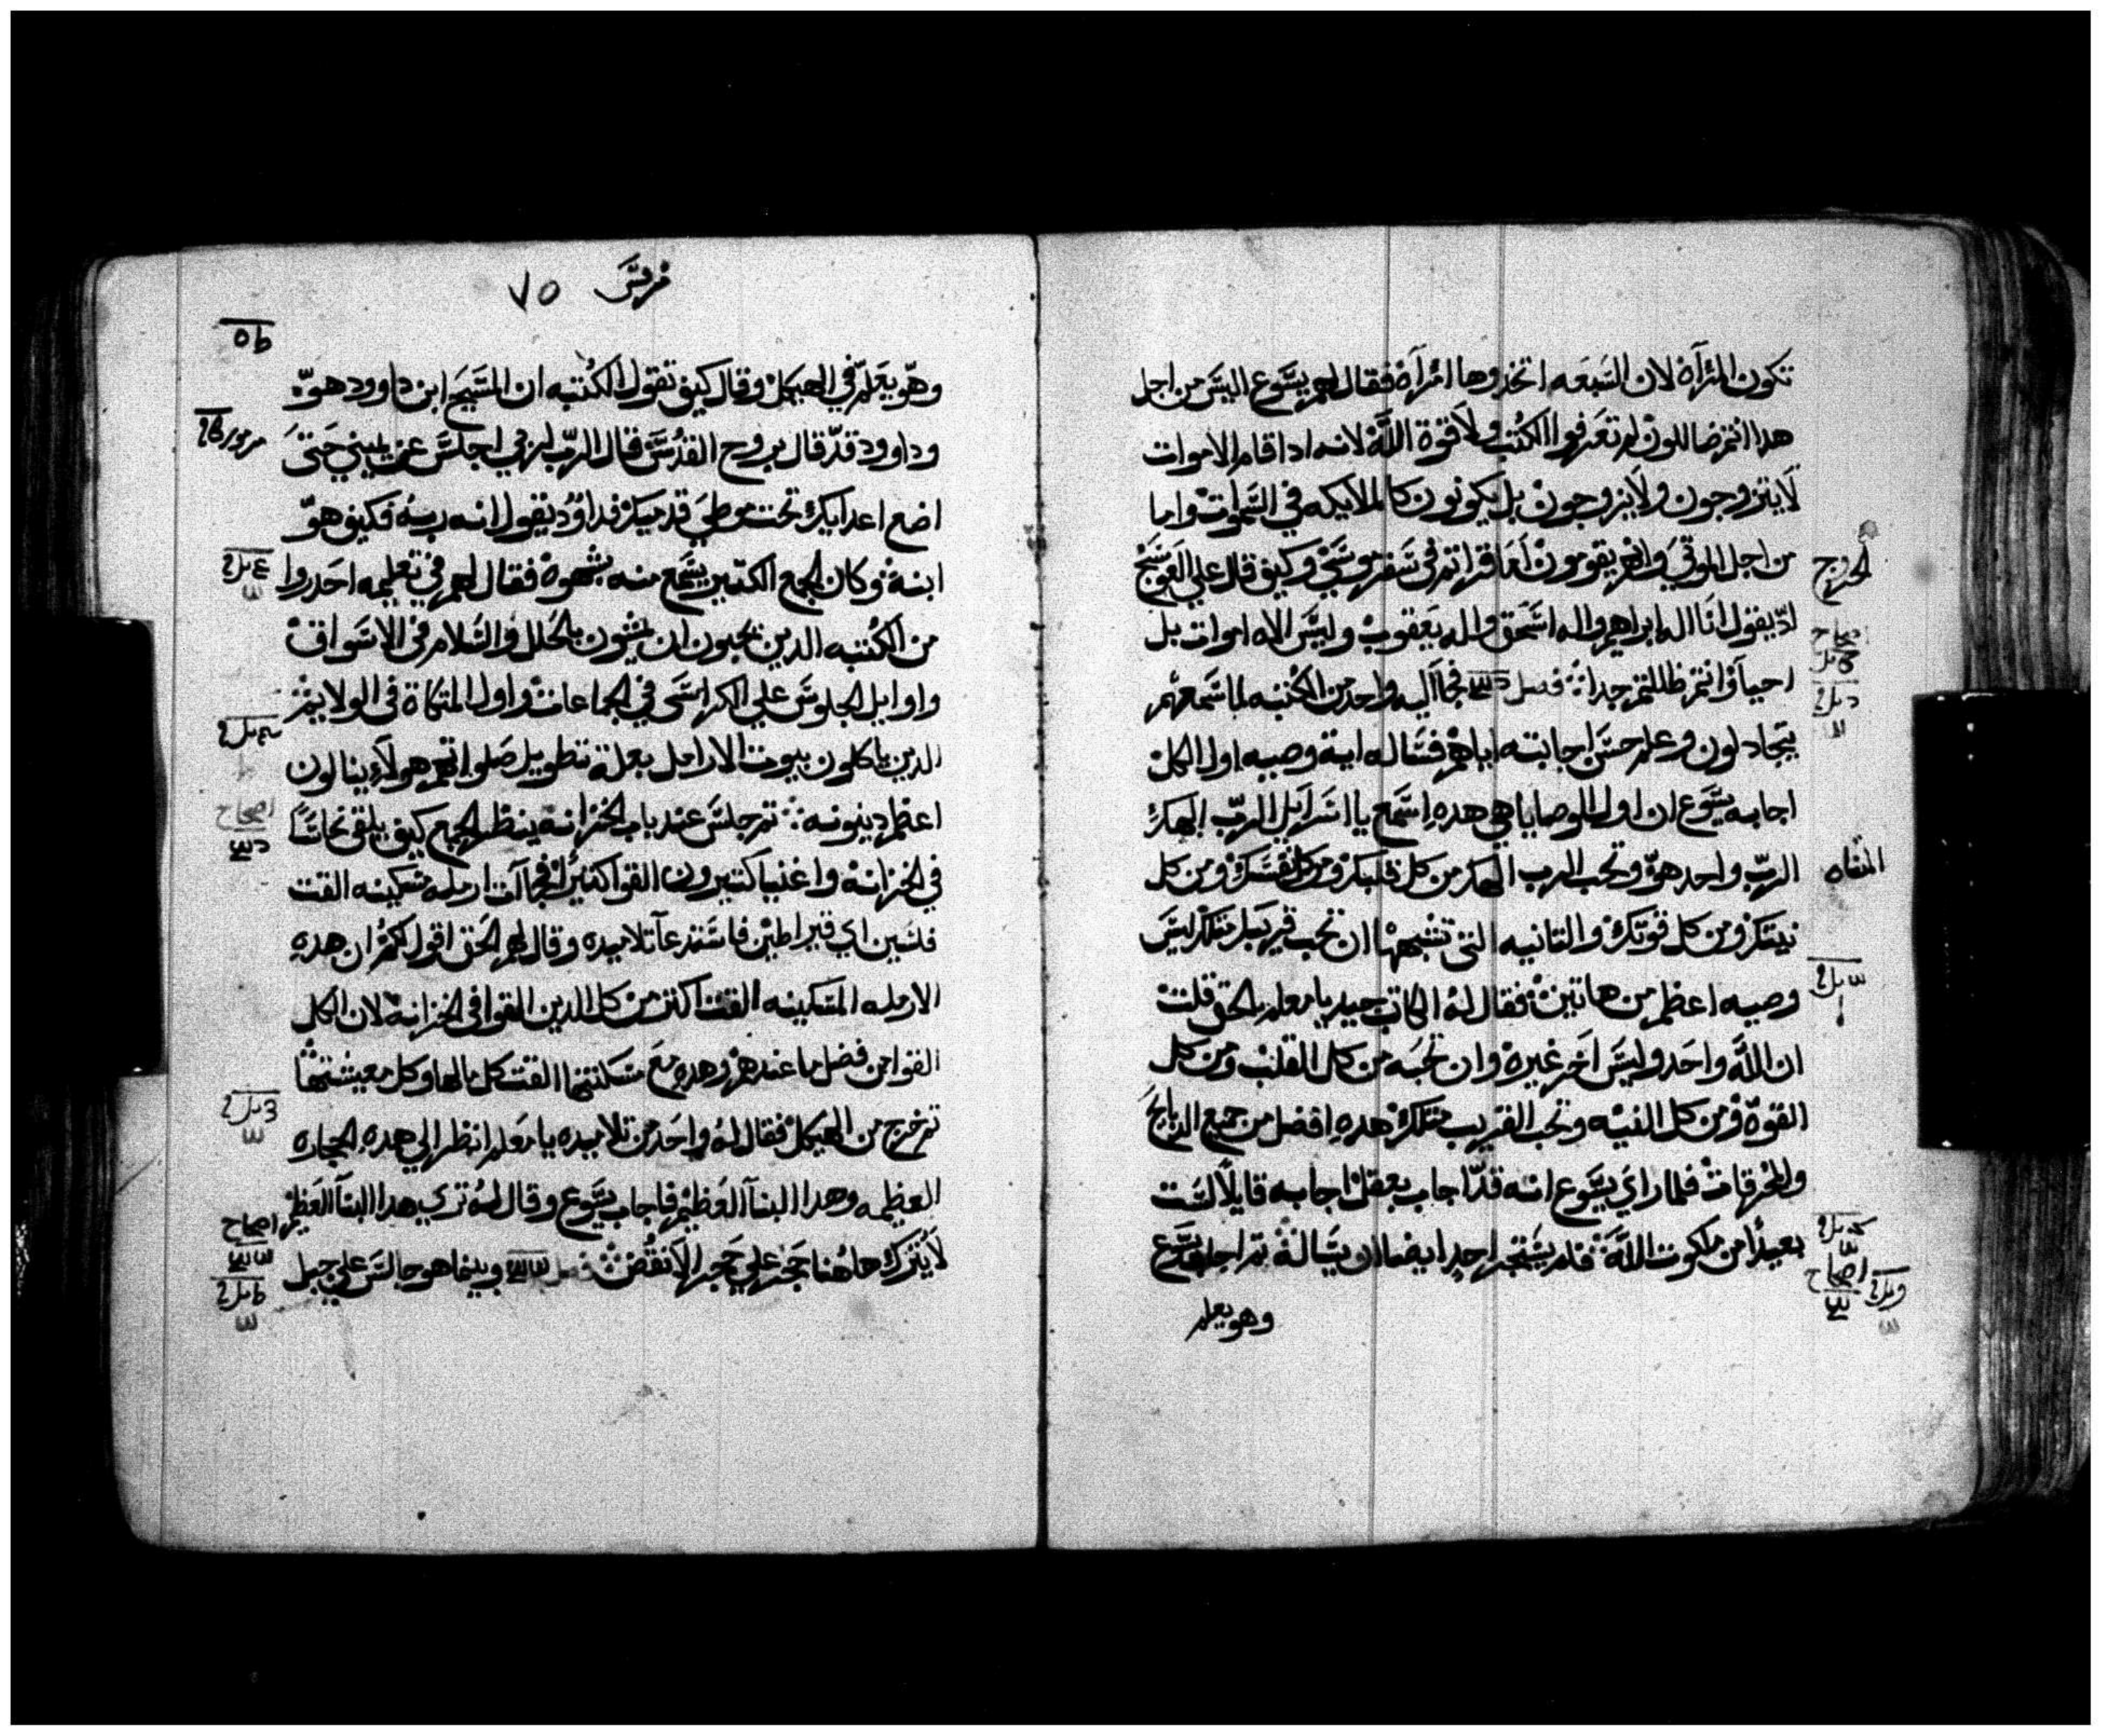 تكون المرآة لان السبعه اتخدوها امرآة فقال لهم يسوع اليس من اجل
هدا انتم ضاللون لم تعرفوا الكتب ولا قوة الله لانه ادا قام الاموات
لا يتزوجون ولا يزوجون بل يكونون كالملايكه في السموات واما
من اجل الموتي وانهم يقومون لعما قراتم في سفر موسي وكيف قال علي العوسج
اد يقول انا اله ابراهيم واله اسحق واله يعقوب وليس الاه اموات بل
احيآ وانتم ظللتم جدا فصل فجآ اليه واحد من الكتبه لما سمعهم
يتجادلون وعلم حسن اجابته اياهم فساله اية وصيه اول الكل
اجابه يسوع ان اول الوصايا هي هده اسمع يا اسرايل الرب الهك
الرب واحد هو وتحب الرب الهك من كل قلبك ومن كل نفسك ومن كل
نيتك ومن كل قوتك والتانيه التي تشبهها ان تحب قريبك متلك ليس
وصيه اعظم من هاتين فقال له الكاتب جيد يا معلم بالحق قلت
ان الله واحد وليس اخر غيره وان تحبه من كل القلب ومن كل
القوة ومن كل النيه وتحب القريب متلك هده افضل من جميع الدبايح
والمحرقات فلما راي يسوع انه قد اجاب بعقل اجابه قايلا لست
بعيدا من ملكوت الله فلم يستجر احد ايضا ان يساله تم اجاب يسوع
وهو يعلم
الخروج
اصحاح
اصحاح
مرقس ٧٥
وهو يعلم في الهيكل وقال كيف تقول الكتبه ان المسيح ابن داوود هو
وداوود قد قال بروح القدس قال الرب لربي اجلس عن يميني حتي
اضع اعدايك تحت موطي قدميك فداوود يقول انه ربه فكيف هو
ابنه وكان الجمع الكتير يسمع منه بشهوة فقال لهم في تعليمه احدروا
من الكتبه الدين يحبون ان يمشون بالحلل والسلام في الاسواق
واوايل الجلوس علي الكراسي في الجماعات واول المتكاة في الولايم
الدين ياكلون بيوت الارامل بعلة تطويل صلواتهم هولاء ينالون
اعظم دينونه تم جلس عند باب الخزانة ينظر الجمع كيف يلقي نحاسا
في الخزانة واغنيا كتيرون القوا كتيرا فجآات ارمله مسكينه القت
فلسين اي قيراطين فاستدعآ تلاميده وقال لهم الحق اقول لكم ان هده
الارمله المسكينه القت اكتر من كل الدين القوا في الخزانة لان الكل
القوا من فضل ما عندهم وهده مع مسكنتها القت كل مالها وكل معيشتها
تم خرج من الهيكل فقال له واحد من تلاميده يا معلم انظر الي هده الحجاره
العظيمه وهدا البنآ العظيم فاجاب يسوع وقال له تري هدا البنآ العظيم
لا يترك هاهنا حجر علي حجر الا نقض فصل وبينما هو جالس علي جبل
مزمور
اصحاح
اصحاح